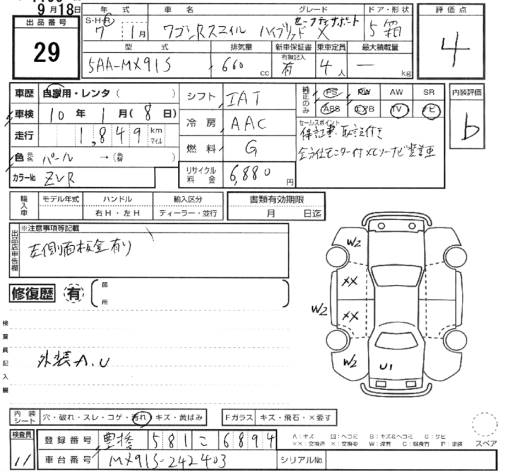 9月18日
出品番号 29
年式 車名 グレード ドア・形状
S・H・R 7年 1月 ワゴンRスマイル ハイブリッド X セーフティサポート 5 箱
型式 排気量 新車保証書 乗車定員 最大積載量
5AA-MX91S 660 cc 有 4人 ― kg
評価点 4
車歴 自家用・レンタ( )
車検 10年 1月(8日)
走行 1,849 km マイル
色 パール →(替)
カラーNo. ZVR
シフト IAT
冷房 AAC
燃料 G
リサイクル料金 6,880 円
純正のみ PS PW AW SR
ABS エアB TV ナビ
内装評価 b
セールスポイント
保証書、取説付き
全方位モニター付メモリーナビ
輸入車 モデル年式 ハンドル 輸入区分
年 右H・左H ディーラー・並行
書類有効期限 月 日迄
出品店申告欄
※注意事項等記載
左側面板金有り
修復歴 有
部
所
検査員記入欄
外装A.U
W2 XX XX W2 W2 W2 U1
内装シート 穴・破れ・スレ・コゲ・汚れ・キズ・黄ばみ
Fガラス キズ・飛石・×要す
検査員 11
登録番号 豊橋 581 こ 6894
車台番号 MX91S-242403
シリアルNo.
スペア